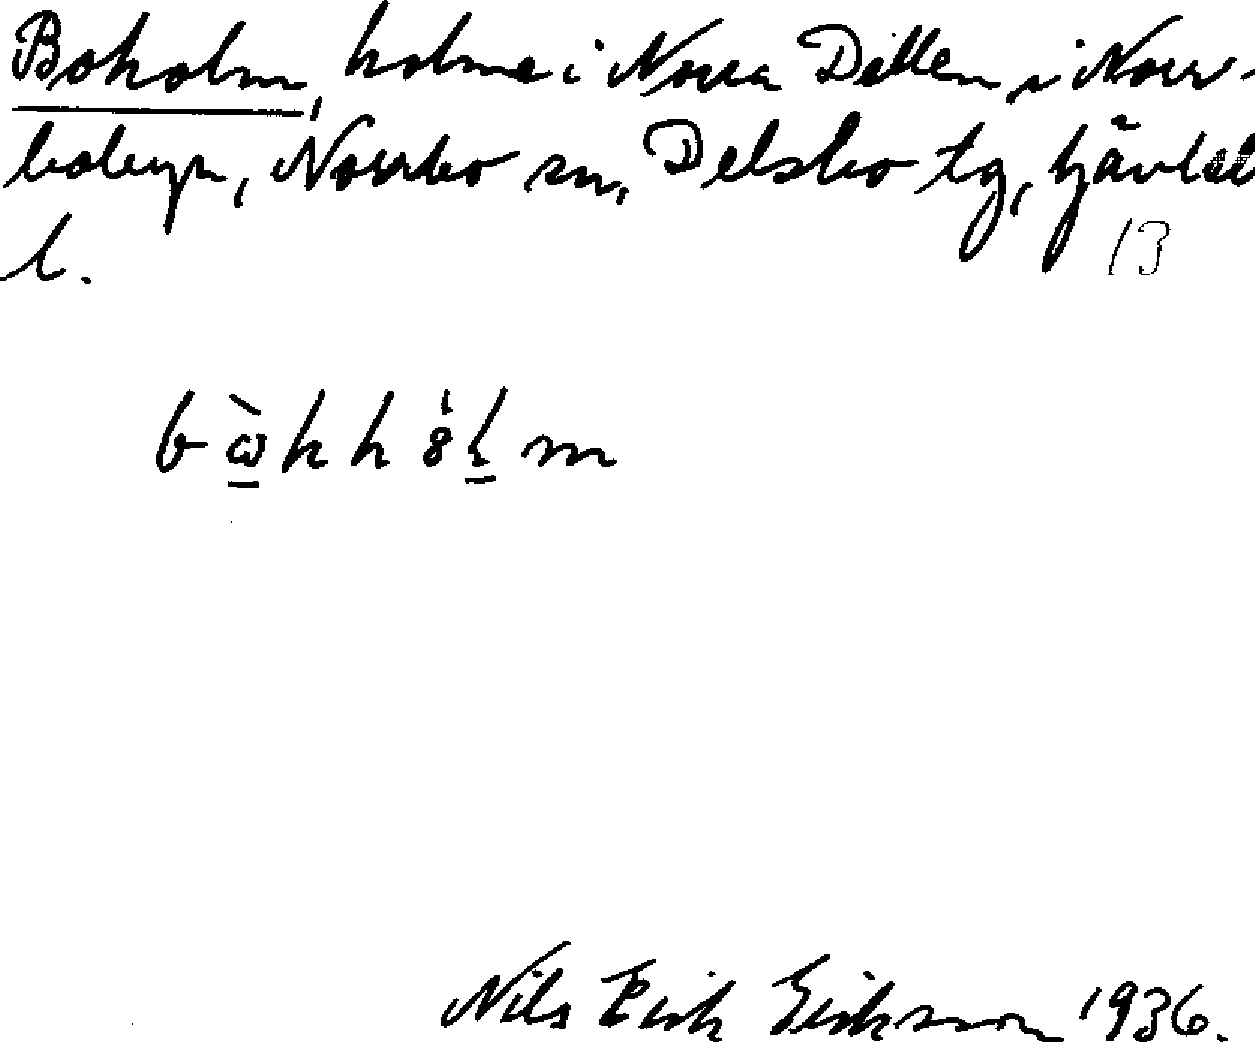 Boholm, holme i Norra Dellen, i Norr-
bobyn, Norrbo sn, Delsbo tg, Gävleb
l. 13
Nils Erik Eriksson 1936.